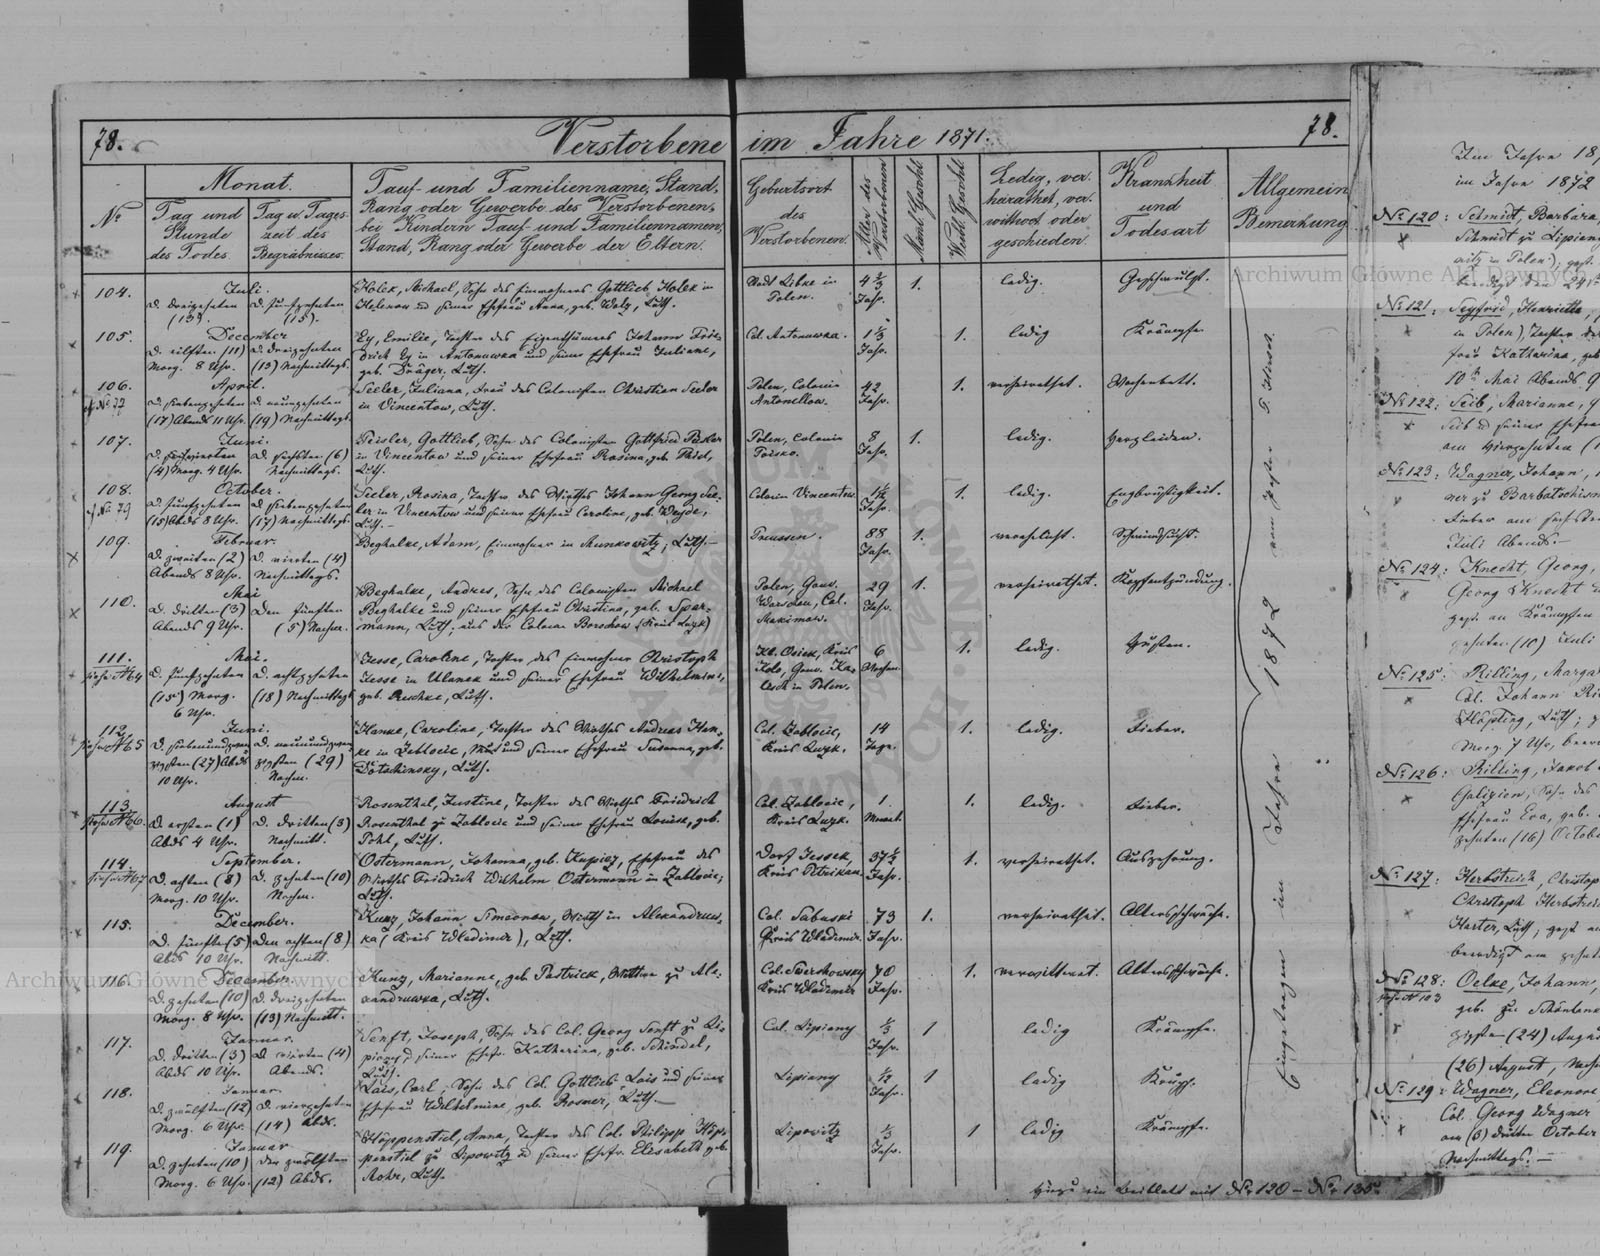 78.
Verstorbene im Jahre 1871.
78.
No
Monat.
Tag und Stunde des Todes
Tag u. Tageszeit des Begräbnisses.
Tauf- und Familienname, Stand,
Rang oder Gewerbe des Verstorbenen,
bei Kindern Tauf- und Familiennamen,
Stand, Rang oder Gewerbe der Eltern.
Geburtsort
des
Verstorbenen.
Alter des Verstorbenen
Männl. Geschl.
Weibl. Geschl.
Ledig, ver-
heirathet, ver-
wittwet oder
geschieden.
Krankheit
und
Todesart
Allgemein
Bemerkung
104.
Juli.
D. dreizehnten (13).
D. fünfzehnten (15).
Holek, Michael, Sohn des Einwohners Gottlieb Holek in
Helenow und seiner Ehefrau Anna, geb. Welz, Luth.
Polen.
Jahr.
1.
ledig.
Geschwulst.
105.
December
D. eilften (11) Morg. 8 Uhr.
D. dreizehnten (13) Nachmittags.
Ey, Emilie, Tochter des Eigenthümers Johann Frie-
drich Ey in Antonuwka und seiner Ehefrau Juliane,
geb. Dräger, Luth.
Col. Antonuwka.
1 1/3 Jahr.
1.
ledig
Krämpfe.
106.
cf. No 72
April.
D. siebenzehnten (17) Abends 11 Uhr.
D. neunzehnten (19) Nachmittags.
Seeler, Juliana, Frau des Colonisten Christian Seeler
in Vincentow, Luth.
Polen, Colonie
Antonellow.
42 Jahr.
1.
verheirathet.
Wochenbett.
107.
Juni.
(4) Morg. 4 Uhr.
D. sechsten (6) Nachmittags.
Peisler, Gottlieb, Sohn des Colonisten Gottfried
in Vincentow und seiner Ehefrau Rosina, geb.
Luth.
Polen, Colonie
8 Jahr.
1.
ledig.
Herzleiden.
108.
cf. No 79
October.
D. fünfzehnten (15) Abds 8 Uhr.
D. siebenzehnten (17) Nachmittags.
Seeler, Rosina, Tochter des Wirthes Johann Georg See-
ler in Vincentow und seiner Ehefrau Caroline, geb. Weyde,
Luth.
Colonie Vincentow
Jahr.
1.
ledig.
Engbrüstigkeit.
109.
Februar.
D. zweiten (2) Abends 8 Uhr.
D. vierten (4) Nachmittags.
Beghalke, Adam, Einwohner in Munkowitz, Luth.
Preussen.
88 Jahr.
1.
verehelicht.
Schwindsucht.
110.
Mai
D. dritten (3) Abends 9 Uhr.
Den fünften (5) Nachm.
Beghalke, Andreas, Sohn des Colonisten Michael
Beghalke und seiner Ehefrau Christina, geb. Spar-
mann, Luth; aus der Colonie Borschow (Kreis Luzk)
Polen, Gouv.
Warschau, Col.
Maximow.
29 Jahr.
1.
verheirathet.
Kopfentzündung.
111.
siehe No 64
Mai.
D. fünfzehnten (15) Morg. 6 Uhr.
D. achtzehnten (18) Nachmittags
Jesse, Caroline, Tochter des Einwohner Christoph
Jesse in Ulanek und seiner Ehefrau Wilhelmine,
geb. Ruschke, Luth.
Kl. Osiek, Kreis
Kolo, Gouv. Ka-
lisch in Polen.
6 Wochen
1.
ledig.
Husten.
112.
siehe No 65
Juni.
D. siebenundzwan-
zigsten (27) Abds 10 Uhr.
D. neunundzwan-
zigsten (29) Nachm.
Hanke, Caroline, Tochter des Wirthes Andreas Han-
ke in Zablocic, und seiner Ehefrau Susanna, geb.
Dotschinsky, Luth.
Col. Zablocic,
Kreis Luzk.
14 Tage.
1.
ledig.
Fieber.
113.
siehe No 66.
August
D. ersten (1) Abds 4 Uhr.
D. dritten (3) Nachmitt.
Rosenthal, Justine, Tochter des Wirthes Friedrich
Rosenthal zu Zablocic und seiner Ehefrau Louise, geb.
Pohl, Luth.
Col. Zablocic,
Kreis Luzk.
1. Monat.
1.
ledig.
Fieber.
114.
siehe No 67
September.
D. achten (8) Morg. 10 Uhr.
D. zehnten (10) Nachm.
Ostermann, Johanna, geb. Kupiez, Ehefrau des
Wirthes Friedrich Wilhelm Ostermann in Zablocic,
Luth.
Dorf Jessek,
Kreis Petrikau.
37 1/2 Jahr.
1.
verheirathet.
Auszehrung.
115.
December.
D. fünften (5) Abds 10 Uhr.
Den achten (8) Nachmitt.
Kunz, Johann Simeonow, Wirth in Alexandruw-
ka (Kreis Wladimir), Luth.
Col. Sabuski
Kreis Wladimir.
73 Jahr.
1.
verheirathet.
Altersschwäche.
116.
December.
D. zehnten (10) Morg. 8 Uhr.
D. dreizehnten (13) Nachmitt.
Kunz, Marianne, geb. Pastrick, Wittwe zu Ale-
xandruwka, Luth.
Kreis Wladimir
70 Jahr.
1.
verwittwet.
Altersschwäche.
117.
Januar.
D. dritten (3) Abds 10 Uhr.
D. vierten (4) Abends.
Senft, Joseph, Sohn des Col. Georg Senft zu Li-
piany & seiner Ehefr. Katharina, geb. Schindel,
Luth.
Col. Lipiany
1/3 Jahr.
1
ledig
Krämpfe.
118.
Januar.
D. zwölften (12) Morg. 6 Uhr.
D. vierzehnten (14) Abds.
Lais, Carl, Sohn des Col. Gottlieb Lais und seiner
Ehefrau Wilhelmine, geb. Rosner, Luth.
Lipiany
1/2 Jahr.
1
ledig
Krupp.
119.
Januar
D. zehnten (10) Morg. 6 Uhr.
den zwölften (12) Abds.
Höppenstiel, Anna, Tochter des Col. Philipp Höp-
penstiel zu Lipowitz & seiner Ehefr. Elisabeth geb.
Rohr, Luth.
Lipowitz
1/3 Jahr.
1
ledig
Krämpfe.
Eingetragen im Jahre 1872 vom Pastor
Hiezu ein Beiblatt mit No 120 – No 135.
Im Jahre 18
im Jahre 1872
No 120: Schmidt, Barbara,
Schmidt zu Lipiany
No 121: Seyfrid, Henriette,
in Polen), Tochter des
frau Katharina, geb.
10ten Mai Abends 9
No 122: Seib, Marianne,
Seib & seiner Ehefrau
am vierzehnten (1
No 123: Wagner, Johann,
ner zu
Fieber am sechsten
Juli Abends.
No 124: Knecht, Georg,
Georg Knecht
gest. an Krämpfen
zehnten (10) Juli
No 125: Rilling, Marga
Col. Johann Ri
Höpting, Luth;
Morg. 7 Uhr, beer
No 126: Rilling, Jakob
Galizien, Sohn des
Ehefrau Eva, geb.
zehnten (16) Octobe
No 127: Herbstreich, Christop
Christoph Herbstreich
Harter, Luth; gest. an
beerdigt am zehnt
No 128: Oelke, Johann,
siehe No 103
geb. zu Schönlank
zigsten (24) Augu
(26) August, Nachm
No 129: Wagner, Eleonore
Col. Georg Wagner
am (3) dritten October
Nachmittags.
Archiwum Główne Akt Dawnych
Archiwum Główne Akt Dawnych
ARCHIWUM GŁÓWNE AKT DAWNYCH